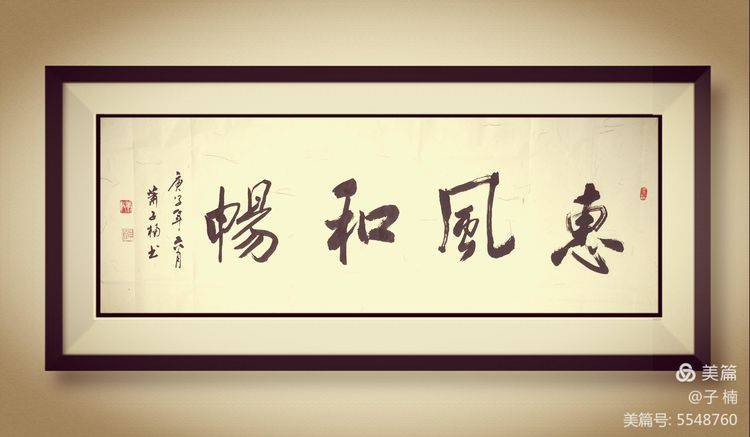 惠風和暢
庚子年六月
蕭子楠书
美篇
@子 楠
美篇号: 5548760